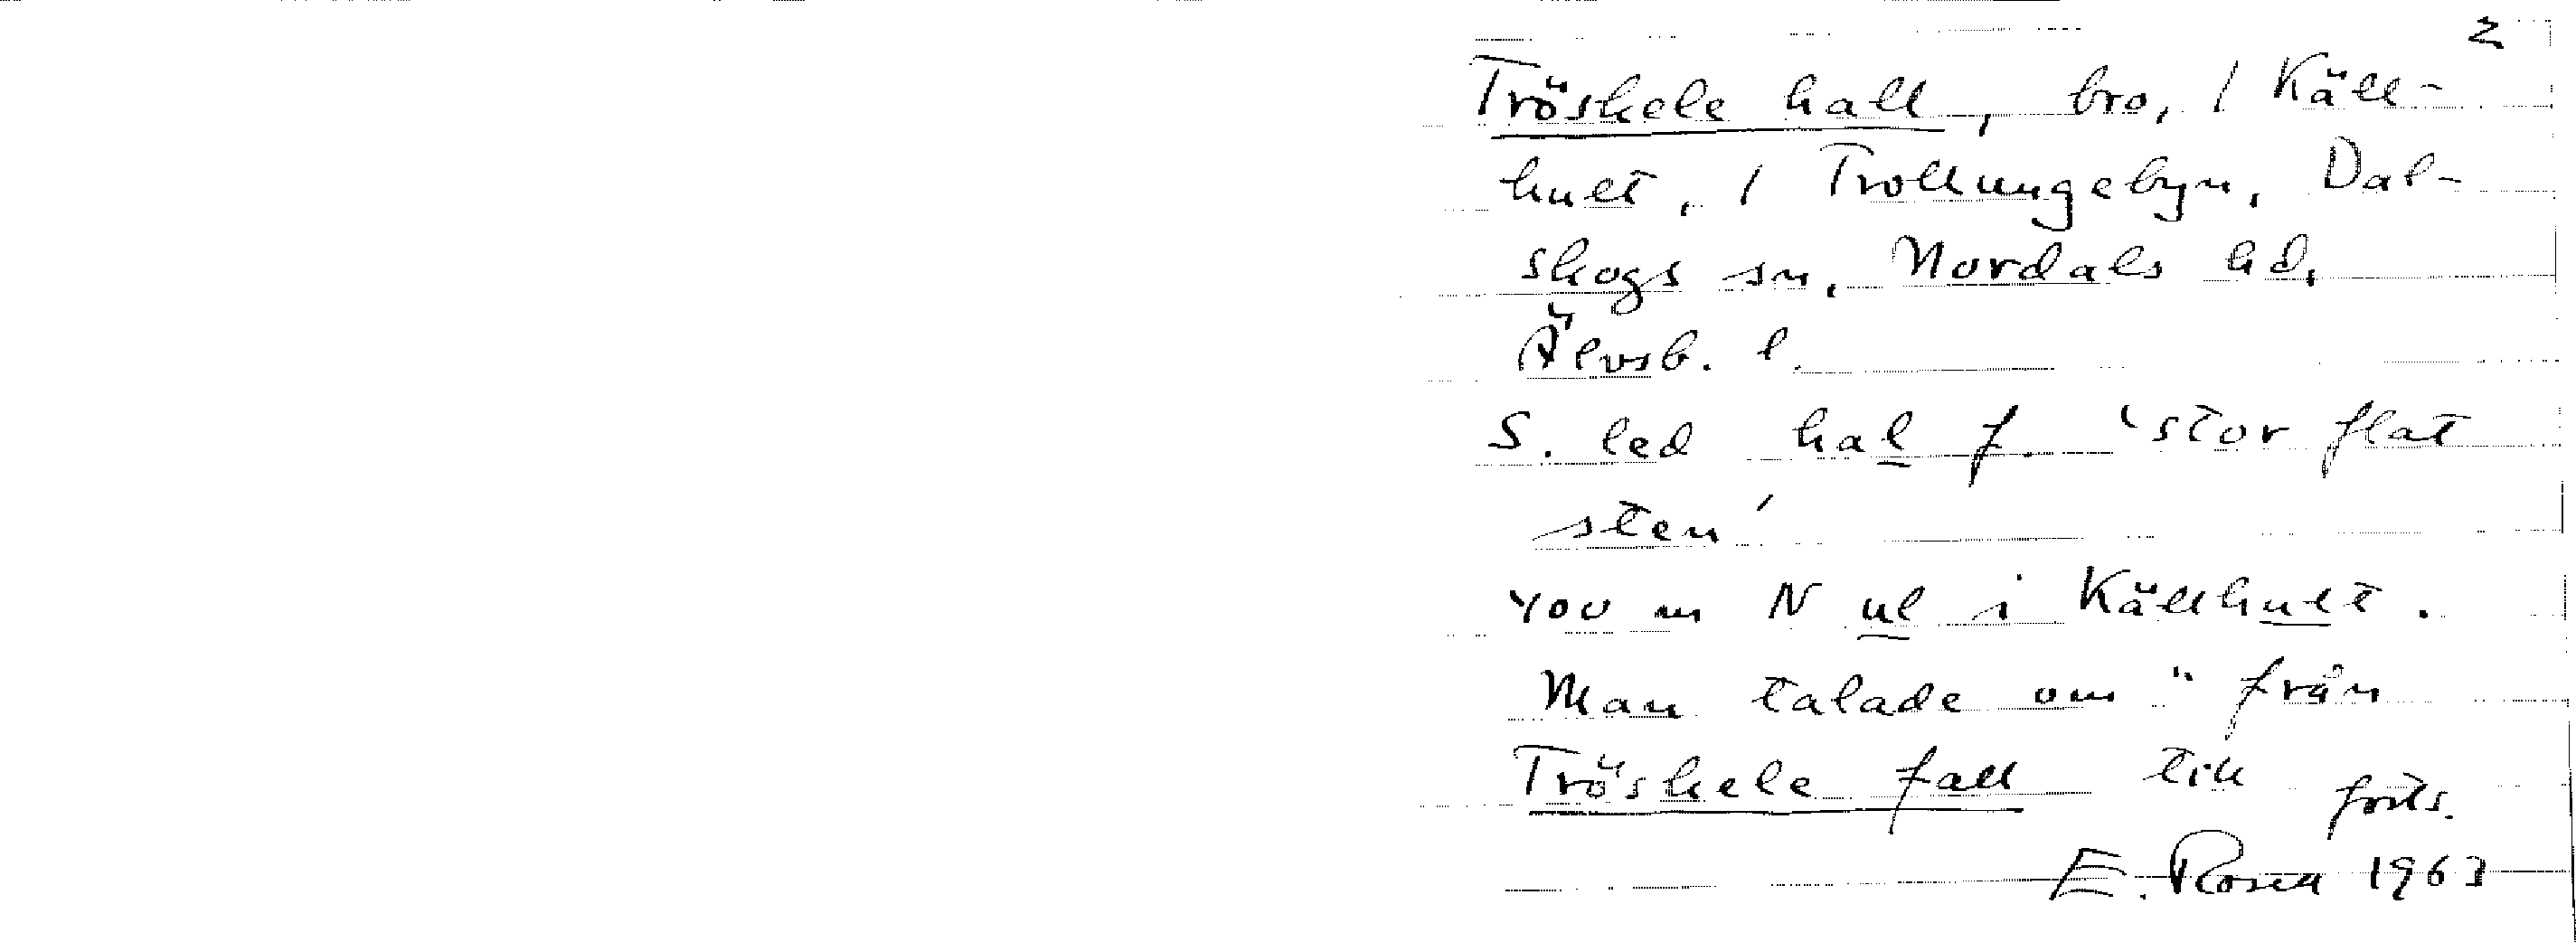 2
Tröskele hall, bro, / Käll-
hult, / Trollungebyn, Dal-
skogs sn, Nordals hd,
Älvsb. l.
S. led hal f. 'stor flat
sten'
400 m N ul i Källhult.
Man talade om " från
Tröskele fall till forts.
E. Rosen 1963